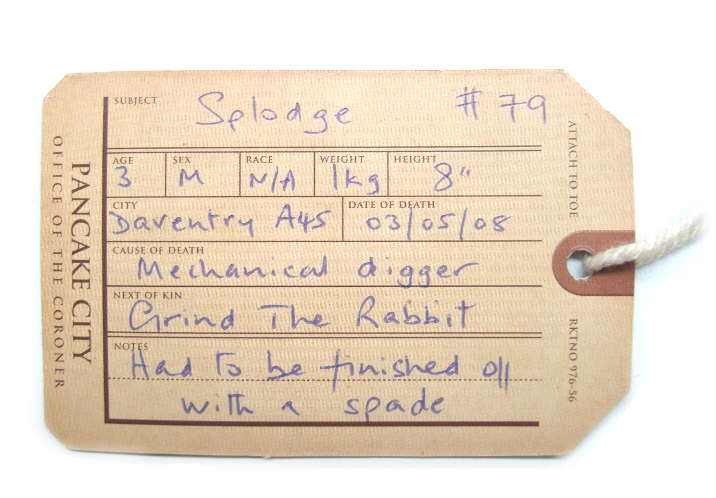 SUBJECT Splodge #79
AGE 3 SEX M RACE N/A WEIGHT 1kg HEIGHT 8"
CITY Daventry A45 DATE OF DEATH 03/05/08
CAUSE OF DEATH
Mechanical digger
NEXT OF KIN
Grind The Rabbit
NOTES
Had to be finished off
with a spade
PANCAKE CITY
OFFICE OF THE CORONER
ATTACH TO TOE
RKTNO 976-56